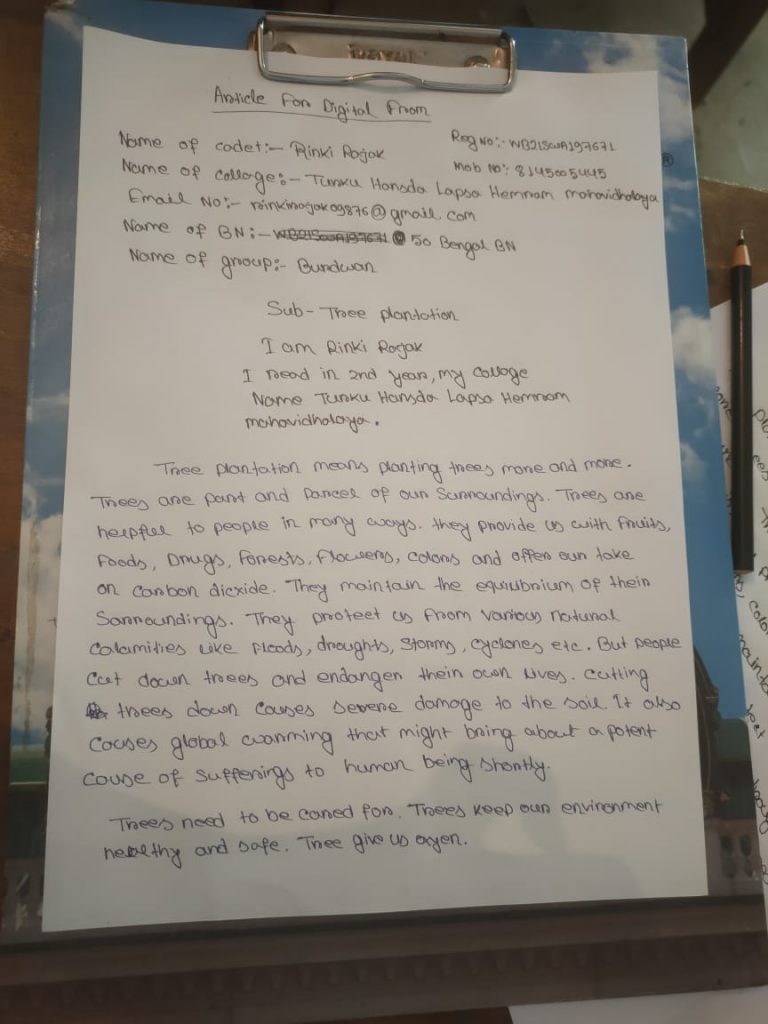 Article For Digital From
Name of cadet:- Rinki Rajak
Reg No:- WB21SWA197671
Name of collage:- Turku Hansda Lapsa Hemnam mahavidhalaya
Mob No: 8145005445
Email No:- rinkirajak09876@gmail.com
Name of BN:- 50 Bengal BN
Name of group:- Bundwan
Sub- Tree plantation
I am Rinki Rajak
I read in 2nd year, my collage
Name Turku Hansda Lapsa Hemnam
mahavidhalaya.
Tree plantation means planting trees more and more.
Trees are part and Parcel of our Surroundings. Trees are
helpful to people in many ways. they provide us with fruits,
foods, Drugs, forests, flowers, colors and offer our take
on carbon dioxide. They maintain the equilibrium of their
Sarroundings. They protect us from various natural
calamities like floods, droughts, storms, cyclones etc. But people
cut down trees and endanger their own lives. cutting
trees down causes severe damage to the soil. It also
causes global warming that might bring about a potent
couse of sufferings to human being shortly.
Trees need to be cared for. Trees keep our environment
healthy and safe. Tree give us oxyen.